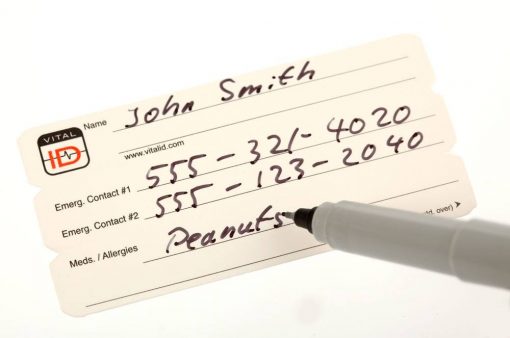 VITAL
ID
Name John Smith
www.vitalid.com
Emerg. Contact #1 555-321-4020
Emerg. Contact #2 555-123-2040
Meds. / Allergies Peanuts
over)